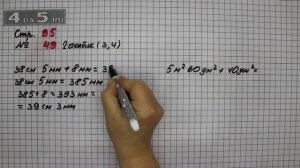 4da5.ru
Стр. 95
№ 49 2 столбик (3,4)
38 см 5 мм + 8 мм = 3
38 см 5 мм = 385 мм
385 + 8 = 393 мм =
= 39 см 3 мм
5 м² 60 дм² + 40 дм² =